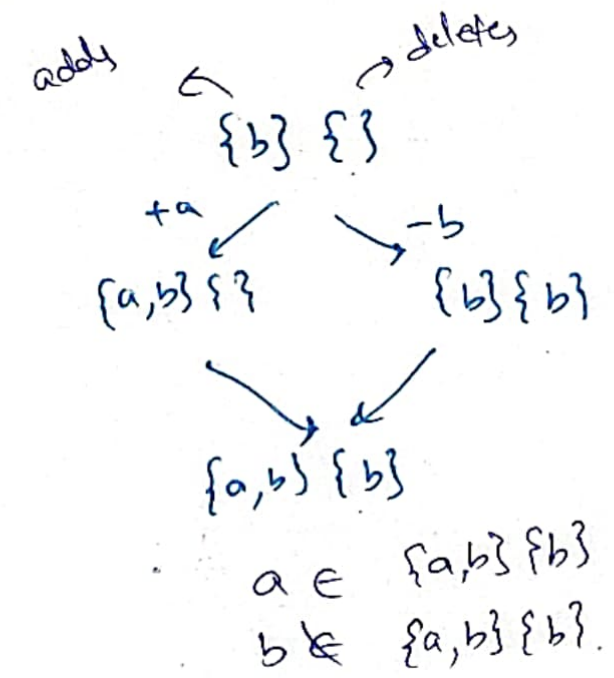 adds deletes
{b} {}
+a -b
{a,b} {} {b} {b}
{a,b} {b}
a ∈ {a,b} {b}
b ∉ {a,b} {b}.